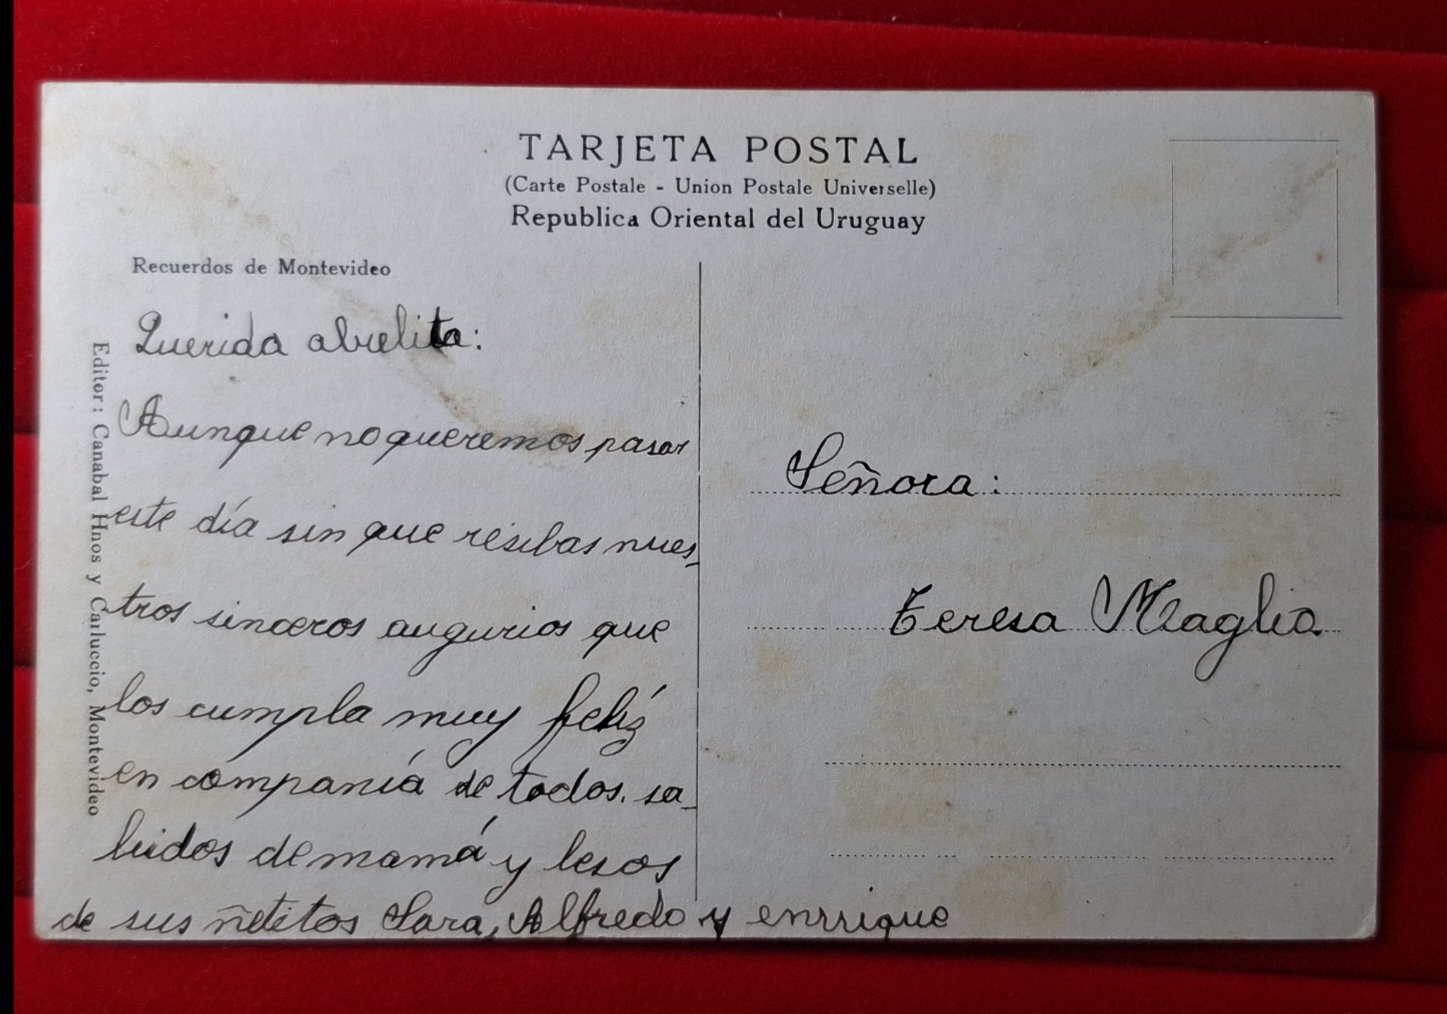 TARJETA POSTAL
(Carte Postale - Union Postale Universelle)
Republica Oriental del Uruguay
Recuerdos de Montevideo
Editor: Canabal Hnos y Carluccio, Montevideo
Querida abuelita:
Aunque no queremos pasar
este día sin que resibas nues_
tros sinceros augurios que
los cumpla muy felíz
en companía de todos. sa_
ludos de mamá y besos
de sus ñetitos Sara, Alfredo y enrrique
Señora:
Teresa Maglia